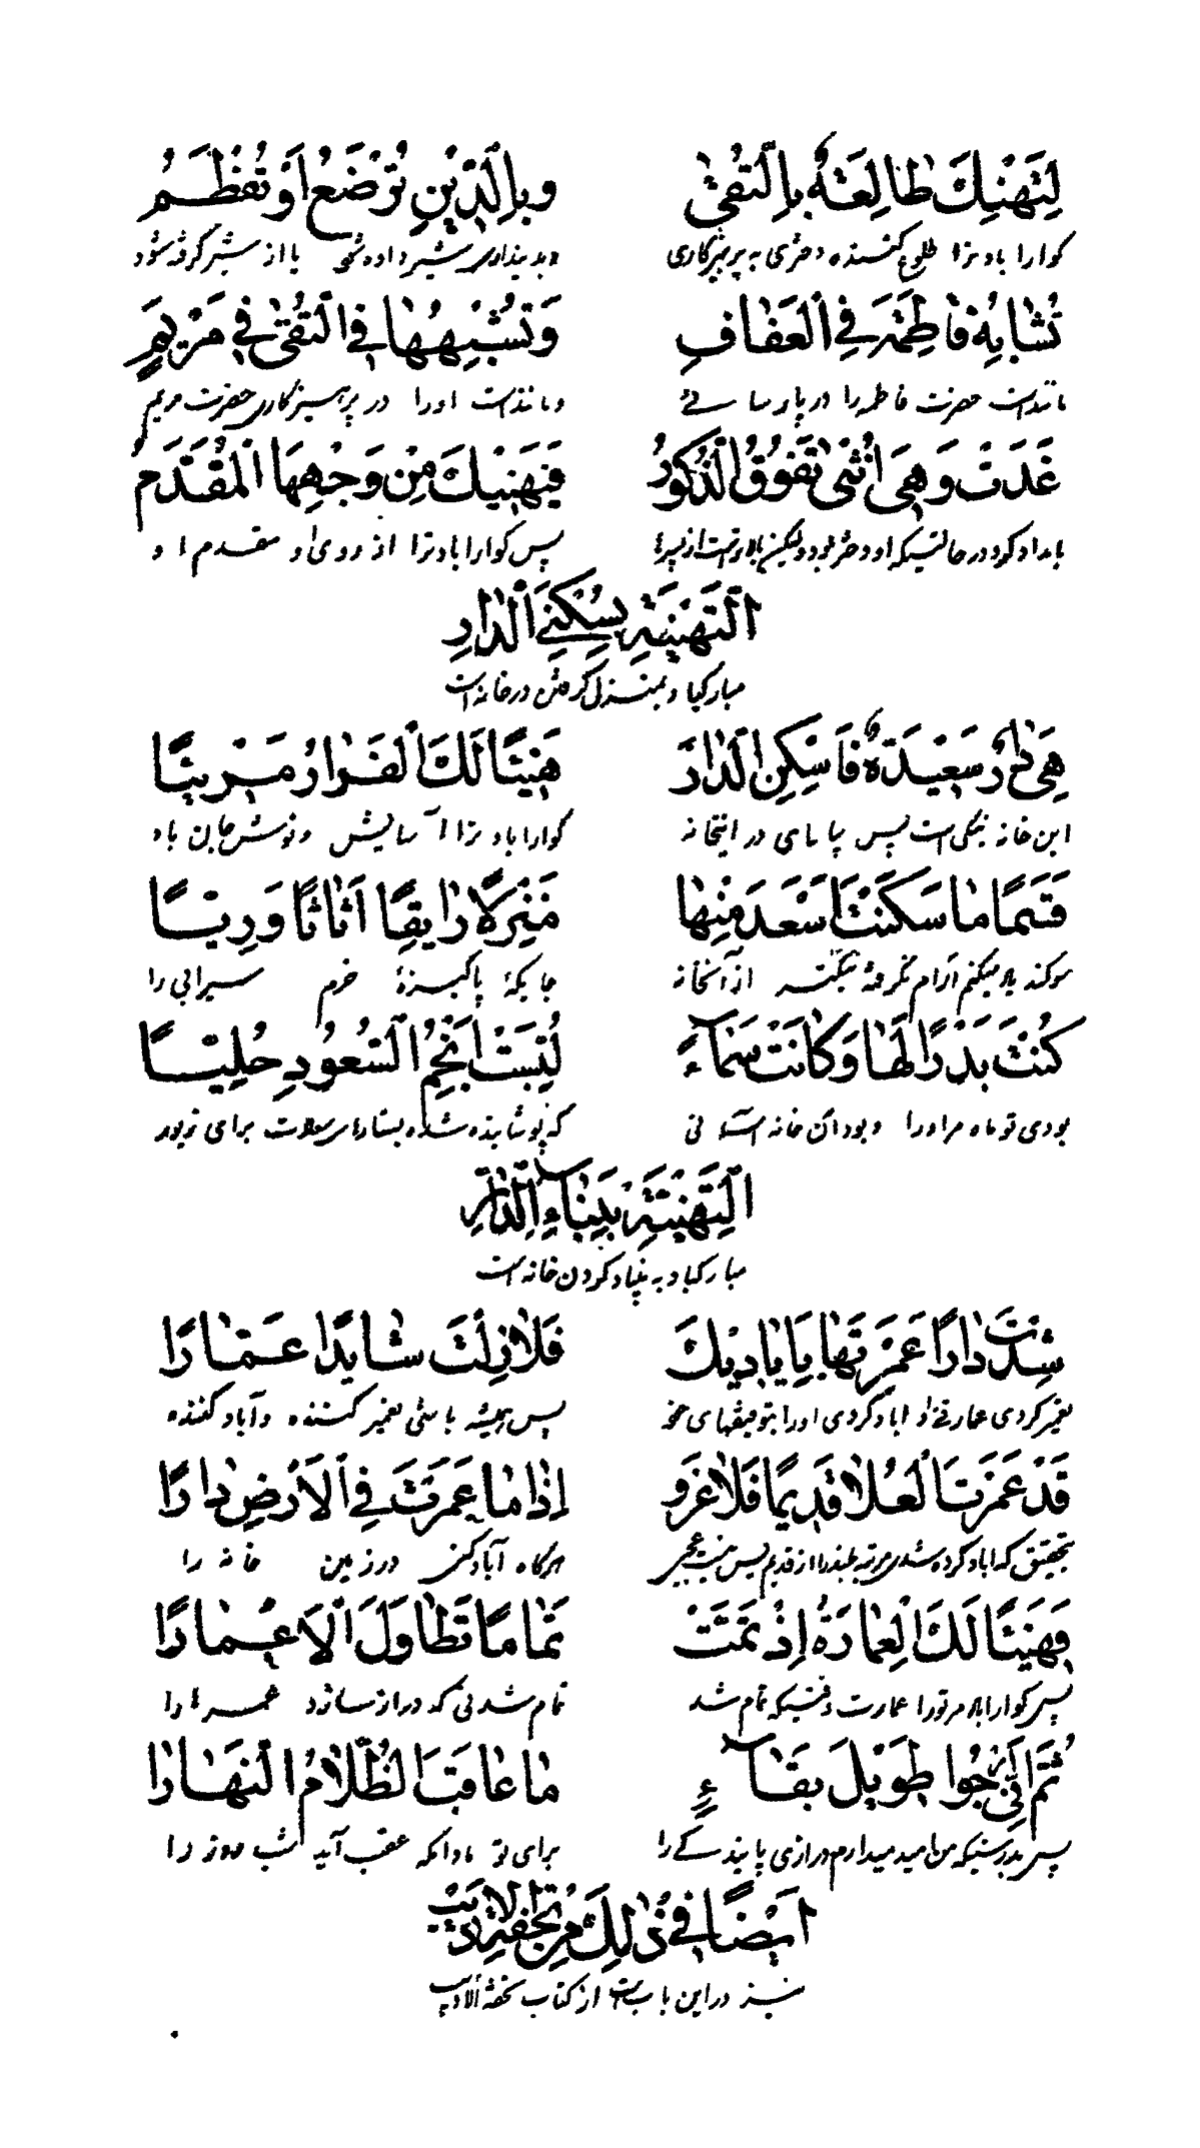 لِتَهْنِكَ طَالِعَةٌ بِالتُّقىٰ وَبِالدِّيْنِ تُرْضَعُ اَوْ تُفْطَمُ
گوارا باد ترا طلوع کننده دختری به پرهیزگاری و بدینداری شیر داده شود یا از شیر گرفته شود
تُشَابِهُ فَاطِمَةَ فِي الْعَفَافِ وَتُشْبِهُهَا فِي التُّقىٰ مَرْيَمُ
مانند است حضرت فاطمه را در پارسائے و مانند است او را در پرهیزگاری حضرت مریم
غَدَتْ وَهِيَ اُنْثىٰ تَفُوْقُ الذُّكُوْرَ فَيَهْنِيْكَ مِنْ وَجْهِهَا الْمَقْدَمُ
بامداد کرد در حالتیکه او دختر بود ولیکن بالاتر است از پسرها پس گوارا باد ترا از روی او مقدم او
التَّهْنِيَةُ بِسُكْنَى الدَّارِ
مبارکباد بمنزل گرفتن در خانه است
هِيَ دَارٌ سَعِيْدَةٌ فَاسْكُنِ الدَّارَ هَنِيْئًا لَكَ الْقَرَارُ مَرِيْئًا
این خانه نیکی است پس بیاسای در اینخانه گوارا باد ترا آسایش و نوش جان باد
قَسَمًا مَا سَكَنْتَ اَسْعَدَ مِنْهَا مَنْزِلًا رَايِقًا اَثَاثًا وَرِيًّا
سوگند یاد میکنم آرام نگرفتۀ نیکتر از آنخانه جایگۀ پاکیزۀ خرم سیرابی را
كُنْتَ بَدْرًا لَهَا وَكَانَتْ سَمَاءً لُبِسَتْ اَنْجُمَ السُّعُوْدِ حُلِيًّا
بودی تو ماه مر او را و بود آن خانه آسمانی که پوشانیده شده بستارهای سعادت برای زیور
التَّهْنِيَةُ بِبِنَاءِ الدَّارِ
مبارکباد به بنیاد کردن خانه است
شِدْتَ دَارًا عَمَرْتَهَا بِاَيَادِيْكَ فَلَا زِلْتَ شَايِدًا عَمَّارًا
تعمیر کردی عمارتی و آباد کردی او را بتوفیقهای خود پس همیشه باشی تعمیر کننده و آباد کننده
قَدْ عَمَرْتَ الْعُلَا قَدِيْمًا فَلَا غَرْوَ اِذَا مَا عَمَرْتَ فِي الْاَرْضِ دَارًا
بتحقیق که آباد کرده مرتبه بلند را از قدیم پس نیست عجبی هرگاه آباد کنی در زمین خانه را
فَهَنِيْئًا لَكَ الْعِمَارَةُ اِذْ تَمَّتْ تَمَامًا تَطَاوَلَ الْاَعْمَارَا
پس گوارا باد مر تو را عمارت وقتیکه تمام شد تمام شدنی که دراز سازد عمرها را
ثُمَّ اِنِّيْ اَرْجُوْا طَوِيْلَ بَقَاءٍ مَا عَاقَبَ الظَّلَامُ النَّهَارَا
پس بدرستیکه من امید میدارم درازی پایندگے را برای تو مادامکه عقب آید شب روز را
اَيْضًا فِيْ ذٰلِكَ مِنْ تُحْفَةِ الْاَدِيْبِ
نیز در این باب است از کتاب تحفة الادیب